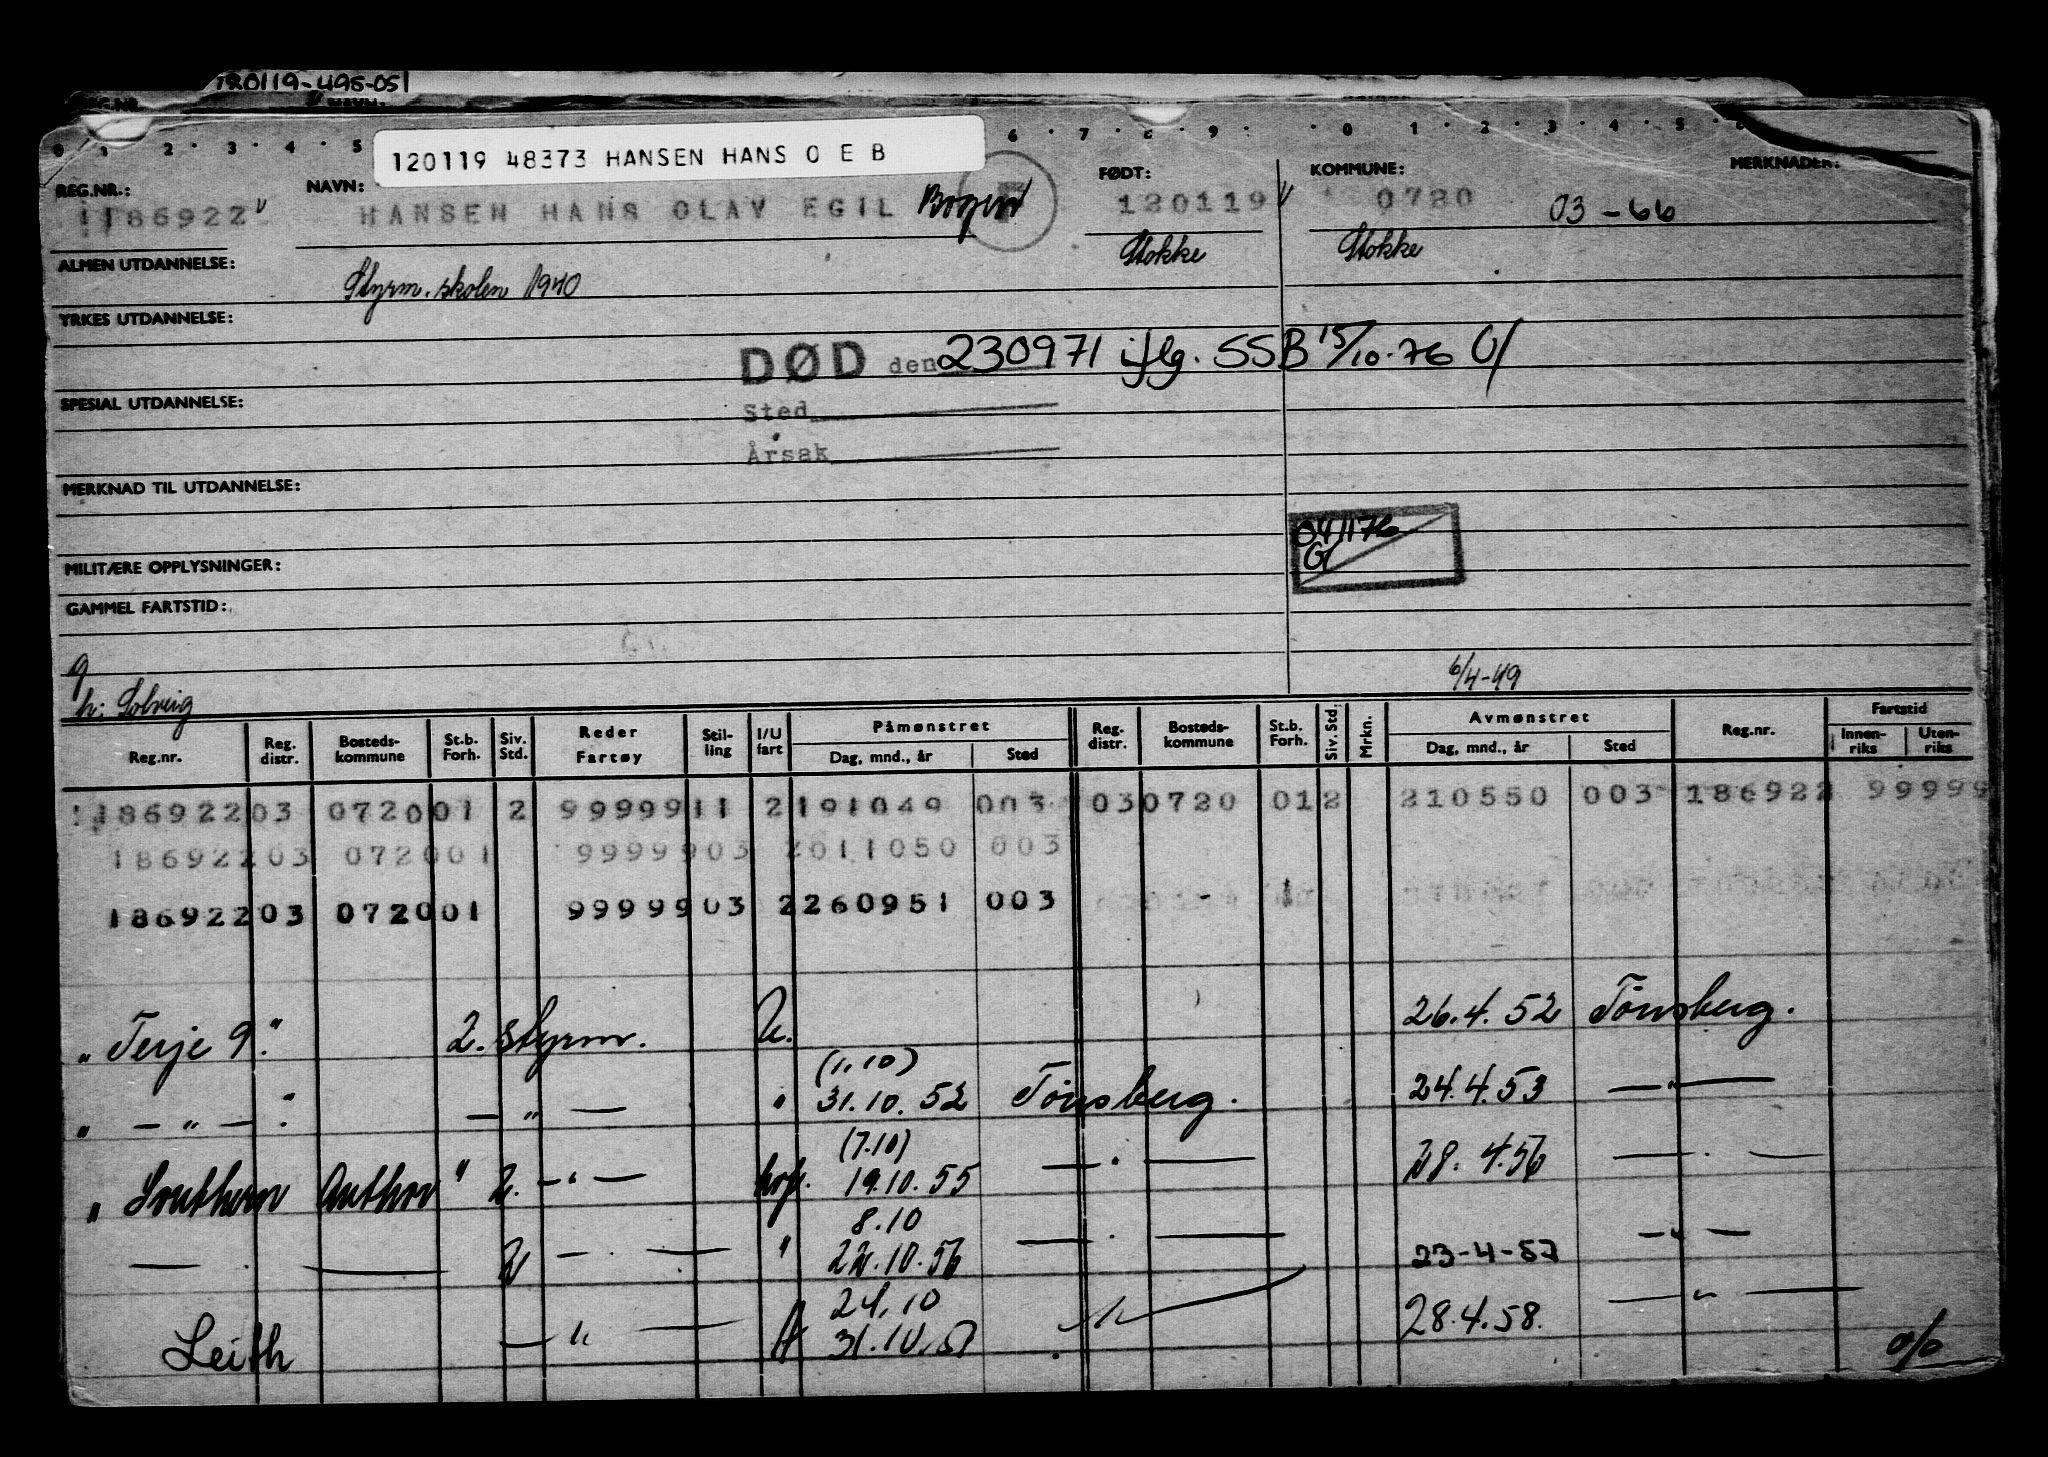 120119-495-051
REG.NR. NAVN:
0 1 2 3 4 5 6 7 8 9 0 1 2 3 4 5
120119 48373 HANSEN HANS O E B
REG.NR.: NAVN: FØDT: KOMMUNE: MERKNADER:
186922 HANSEN HANS OLAV EGIL F 120119 0720 03-66
ALMEN UTDANNELSE: Stokke Stokke
Styrm.skolen 1940
YRKES UTDANNELSE:
DØD den 230971 iflg. SSB 15/10-76
SPESIAL UTDANNELSE:
Sted
Årsak
MERKNAD TIL UTDANNELSE:
041176
G
MILITÆRE OPPLYSNINGER:
GAMMEL FARTSTID:
g
h: Solveig 6/4-49
Reg.nr. Reg. distr. Bosteds-kommune St.b. Forh. Siv. Std. Reder Fartøy Stil-ling I/U fart Påmønstret Dag, mnd., år Sted Reg. distr. Bosteds-kommune St.b. Forh. Siv. Std. Mrkn. Avmønstret Dag, mnd., år Sted Reg.nr. Fartstid Innen-riks Uten-riks
186922 03 0720 01 2 99999 11 2 191049 003 03 0720 01 2 210550 003 186922 99999
186922 03 0720 01 99999 03 2 011050 003
186922 03 0720 01 99999 03 2 260951 003
"Terje 9." 2. styrm. U. 26.4.52 Tönsberg.
(1.10)
" — " — " — " — " 31.10.52 Tönsberg. 24.4.53 — " —
(7.10)
"Southern Author" 2. — " — kok. 19.10.55 — " — 28.4.56 — " —
8.10
— " — 2 — " — " 22.10.56 — " — 23-4-57 — " —
24.10
Leith — " — 31.10.57 — " — 28.4.58. — " —
o/o